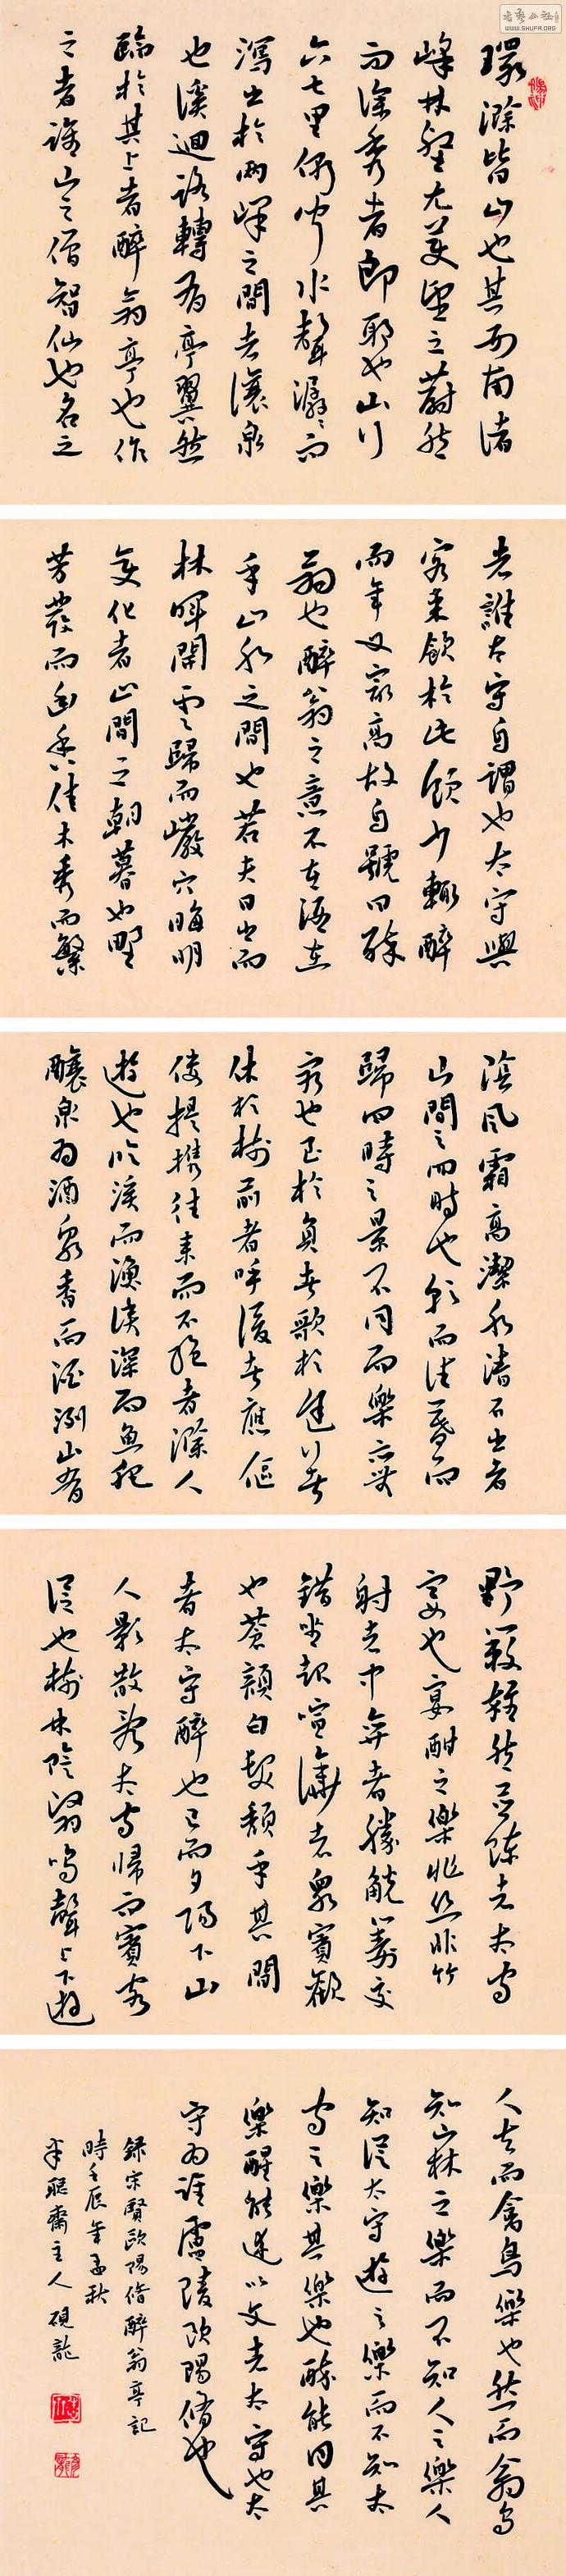 環滁皆山也其西南諸
峰林壑尤美望之蔚然
而深秀者郎耶也山行
六七里漸聞水聲潺潺而
瀉出於兩峰之間者釀泉
也溪迴路轉有亭翼然
臨於其上者醉翁亭也作
之者誰山之僧智仙也名之
者誰太守自謂也太守與
客來飲於此飲少輒醉
而年又最高故自號曰醉
翁也醉翁之意不在酒在
乎山水之間也若夫日出而
林暉開雲歸而巖穴晦明
變化者山間之朝暮也野
芳發而幽香佳木秀而繁
陰風霜高潔水清石出者
山間之四時也朝而往暮而
歸四時之景不同而樂亦無
窮也至於負者歌於途行者
休於樹前者呼後者應傴
僂提攜往來而不絕者滁人
遊也臨溪而漁溪深而魚肥
釀泉為酒泉香而酒洌山肴
野蔌雜然前陳者太守
宴也宴酣之樂非絲非竹
射者中弈者勝觥籌交
錯坐起喧譁者眾賓歡
也蒼顏白髮頹乎其間
者太守醉也已而夕陽下山
人影散亂太守歸而賓客
從也樹林陰翳鳴聲上下遊
人去而禽鳥樂也然而禽鳥
知山林之樂而不知人之樂人
知從太守遊之樂而不知太
守之樂其樂也醉能同其
樂醒能述以文者太守也太
守為誰廬陵歐陽脩也
錄宋賢歐陽脩醉翁亭記
時壬辰年孟秋
半聰齋主人硯龍
WWW.SHUFA.ORG